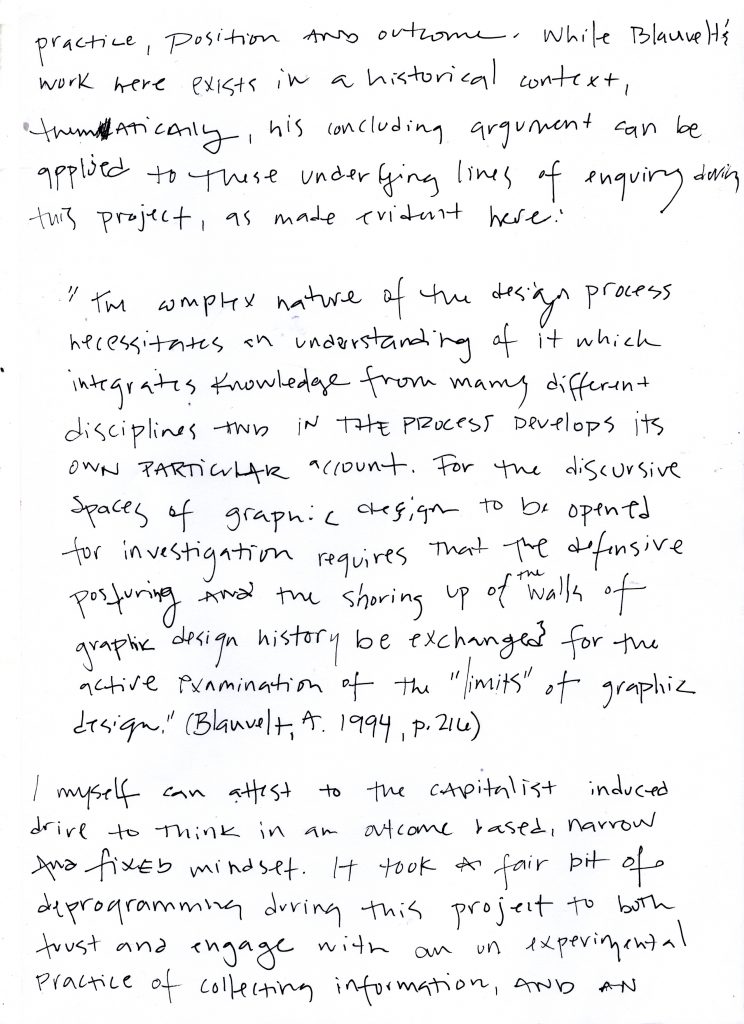 practice, position AND outcome. While Blauvelt's
work here exists in a historical context,
themATICAlly, his concluding argument can be
applied to these underlying lines of enquiry during
this project, as made evident here:
"The complex nature of the design process
necessitates an understanding of it which
integrates knowledge from many different
disciplines AND IN THE PROCESS DEVELOPS its
OWN PARTICULAR account. For the discursive
spaces of graphic design to be opened
for investigation requires that the defensive
posturing AND the shoring up of the walls of
graphic design history be exchanged for the
active examination of the "limits" of graphic
design." (Blauvelt, A. 1994, p.216)
I myself can attest to the CAPitalist induced
drive to think in an outcome based, narrow
AND fixed mindset. It took a fair bit of
deprogramming during this project to both
trust and engage with an un experimental
practice of collecting information, AND AN